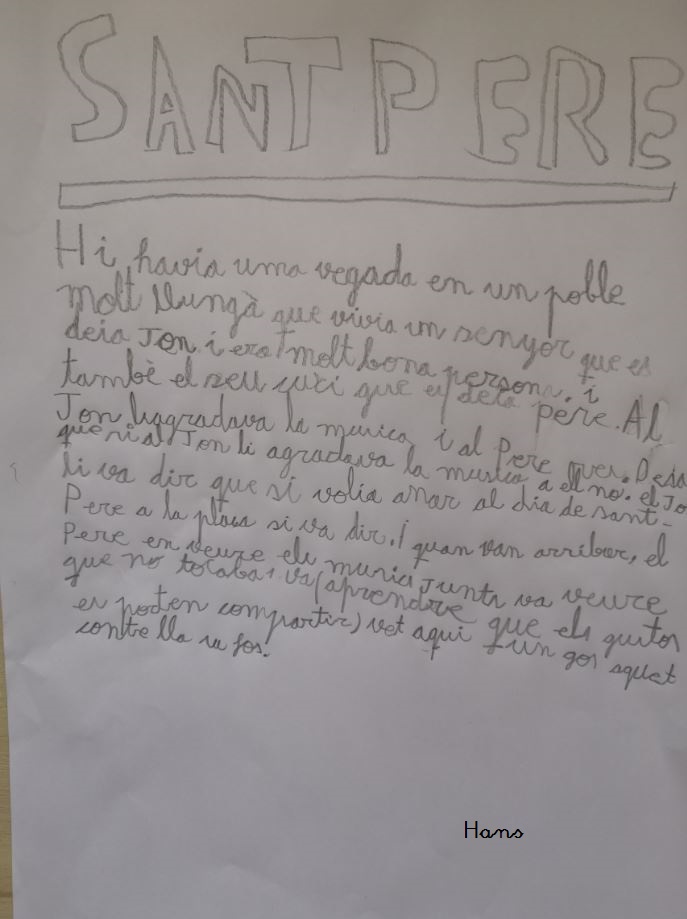 SANT PERE
Hi havia una vegada en un poble
molt llungà que vivia un senyor que es
deia Jon i era molt bona persona. i
també el seu cuci que es deia pere. Al
Jon liagradava la musica i al Pere
que ni al Jon li agradava la musica a ell no. el Jo
li va dir que si volia anar al dia de sant-
Pere a la plaça si va dir. I quan van arribar, el
Pere en veure els musics junts va veure
que no tocaba i va (aprendre que els gustos
es poden compartir) vet aqui un gos aquet
conte lla va fos.
Hans